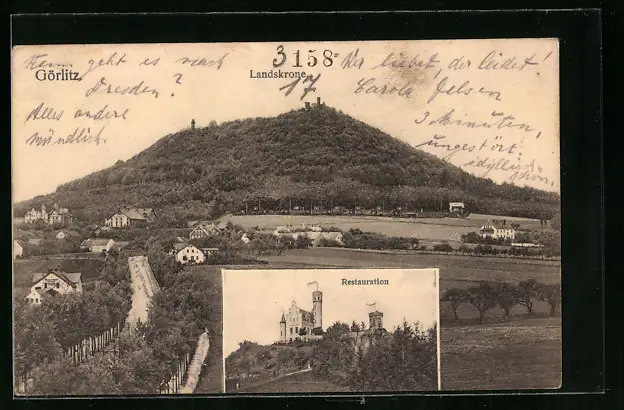 Görlitz
Landskrone
3158
17
Restauration
Wenn geht es nach
Dresden?
Alles andere
mündlich.
Wer liebet, der leidet!
Carola Felsen
3 Minuten,
ungestört
idyllisch
schön.